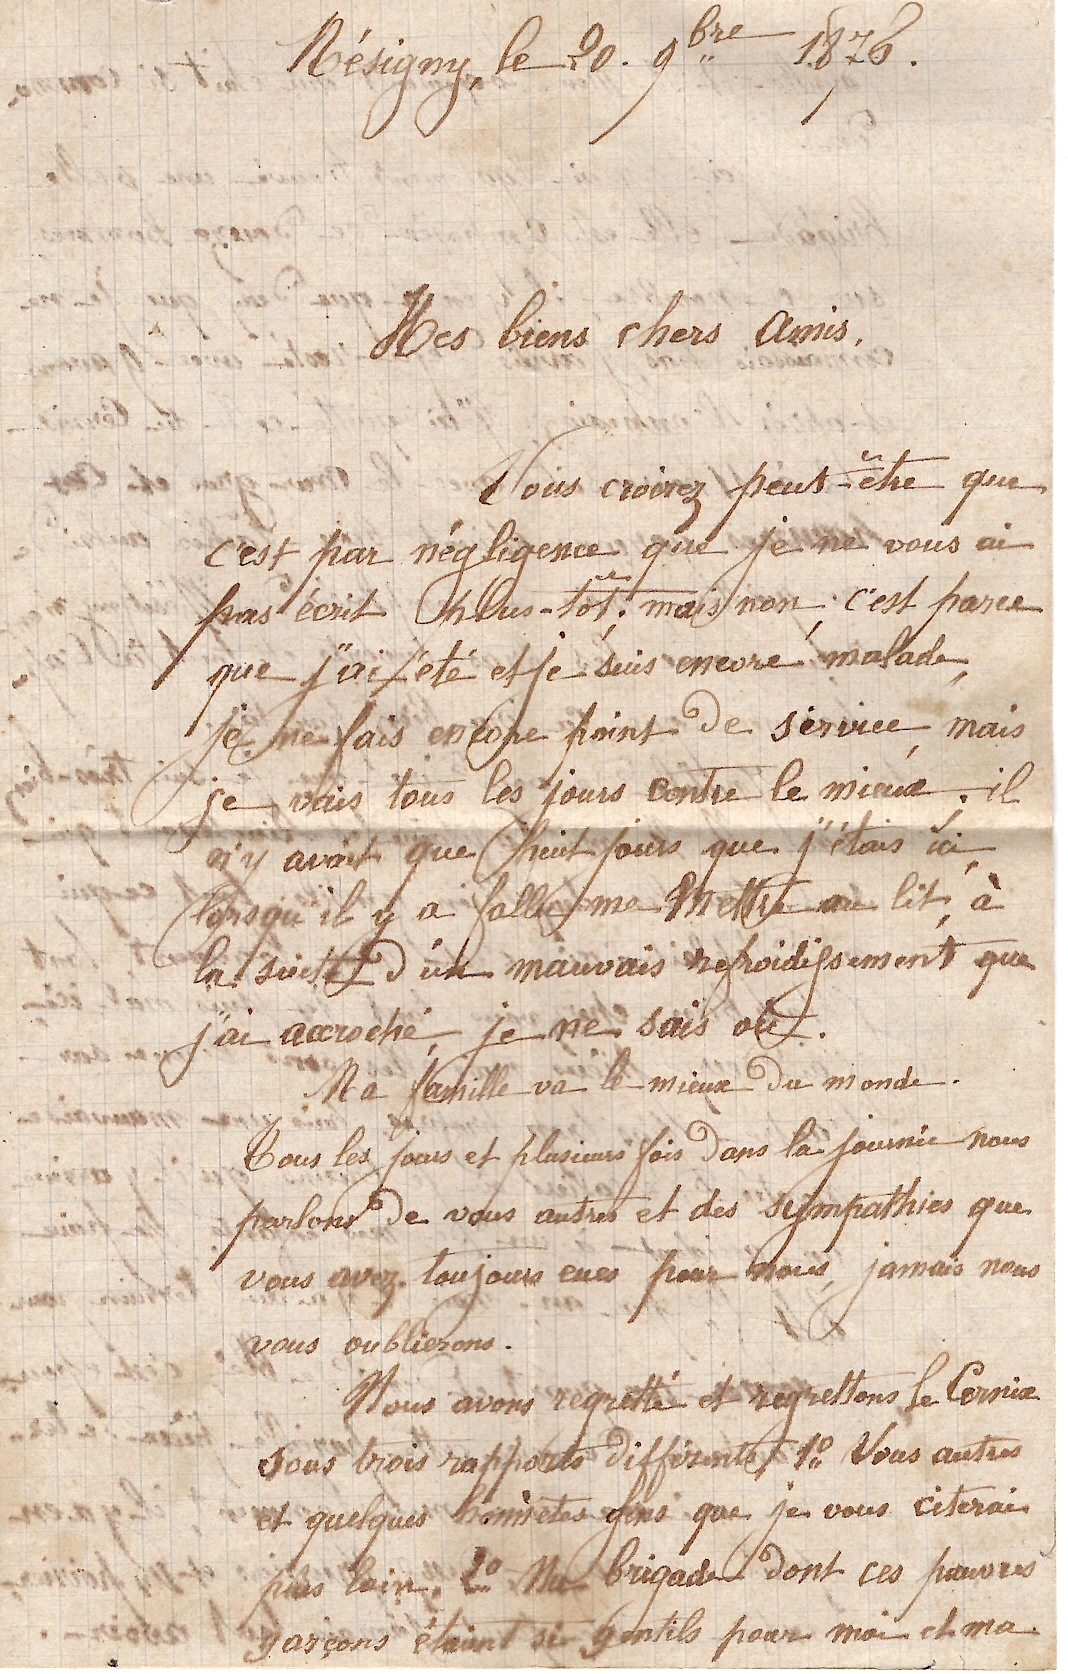 Résigny, le 20. 9bre 1876.
Mes biens chers Amis.
Vous croirez peut-être que
c'est par négligence que je ne vous ai
pas écrit plus-tôt; mais non, c'est parce
que j'ai été et je suis encore malade,
je ne fais encore point de service, mais
je vais tous les jours contre le mieux. il
n'y avait que huit jours que j'étais ici,
lorsqu'il y a fallu me mettre au lit, à
la suite d'un mauvais refroidissement que
j'ai accroché, je ne sais où.
Ma famille va le mieux du monde.
Tous les jours et plusieurs fois dans la journée nous
parlons de vous autres et des sympathies que
vous avez toujours eues pour nous, jamais nous
vous oublierons.
Nous avons regretté et regrettons le Cernix
sous trois rapports différents, 1o Vous autres
et quelques honnêtes gens que je vous citerai
plus loin. 2o Ma brigade dont ces pauvres
garçons étaient si gentils pour moi et ma